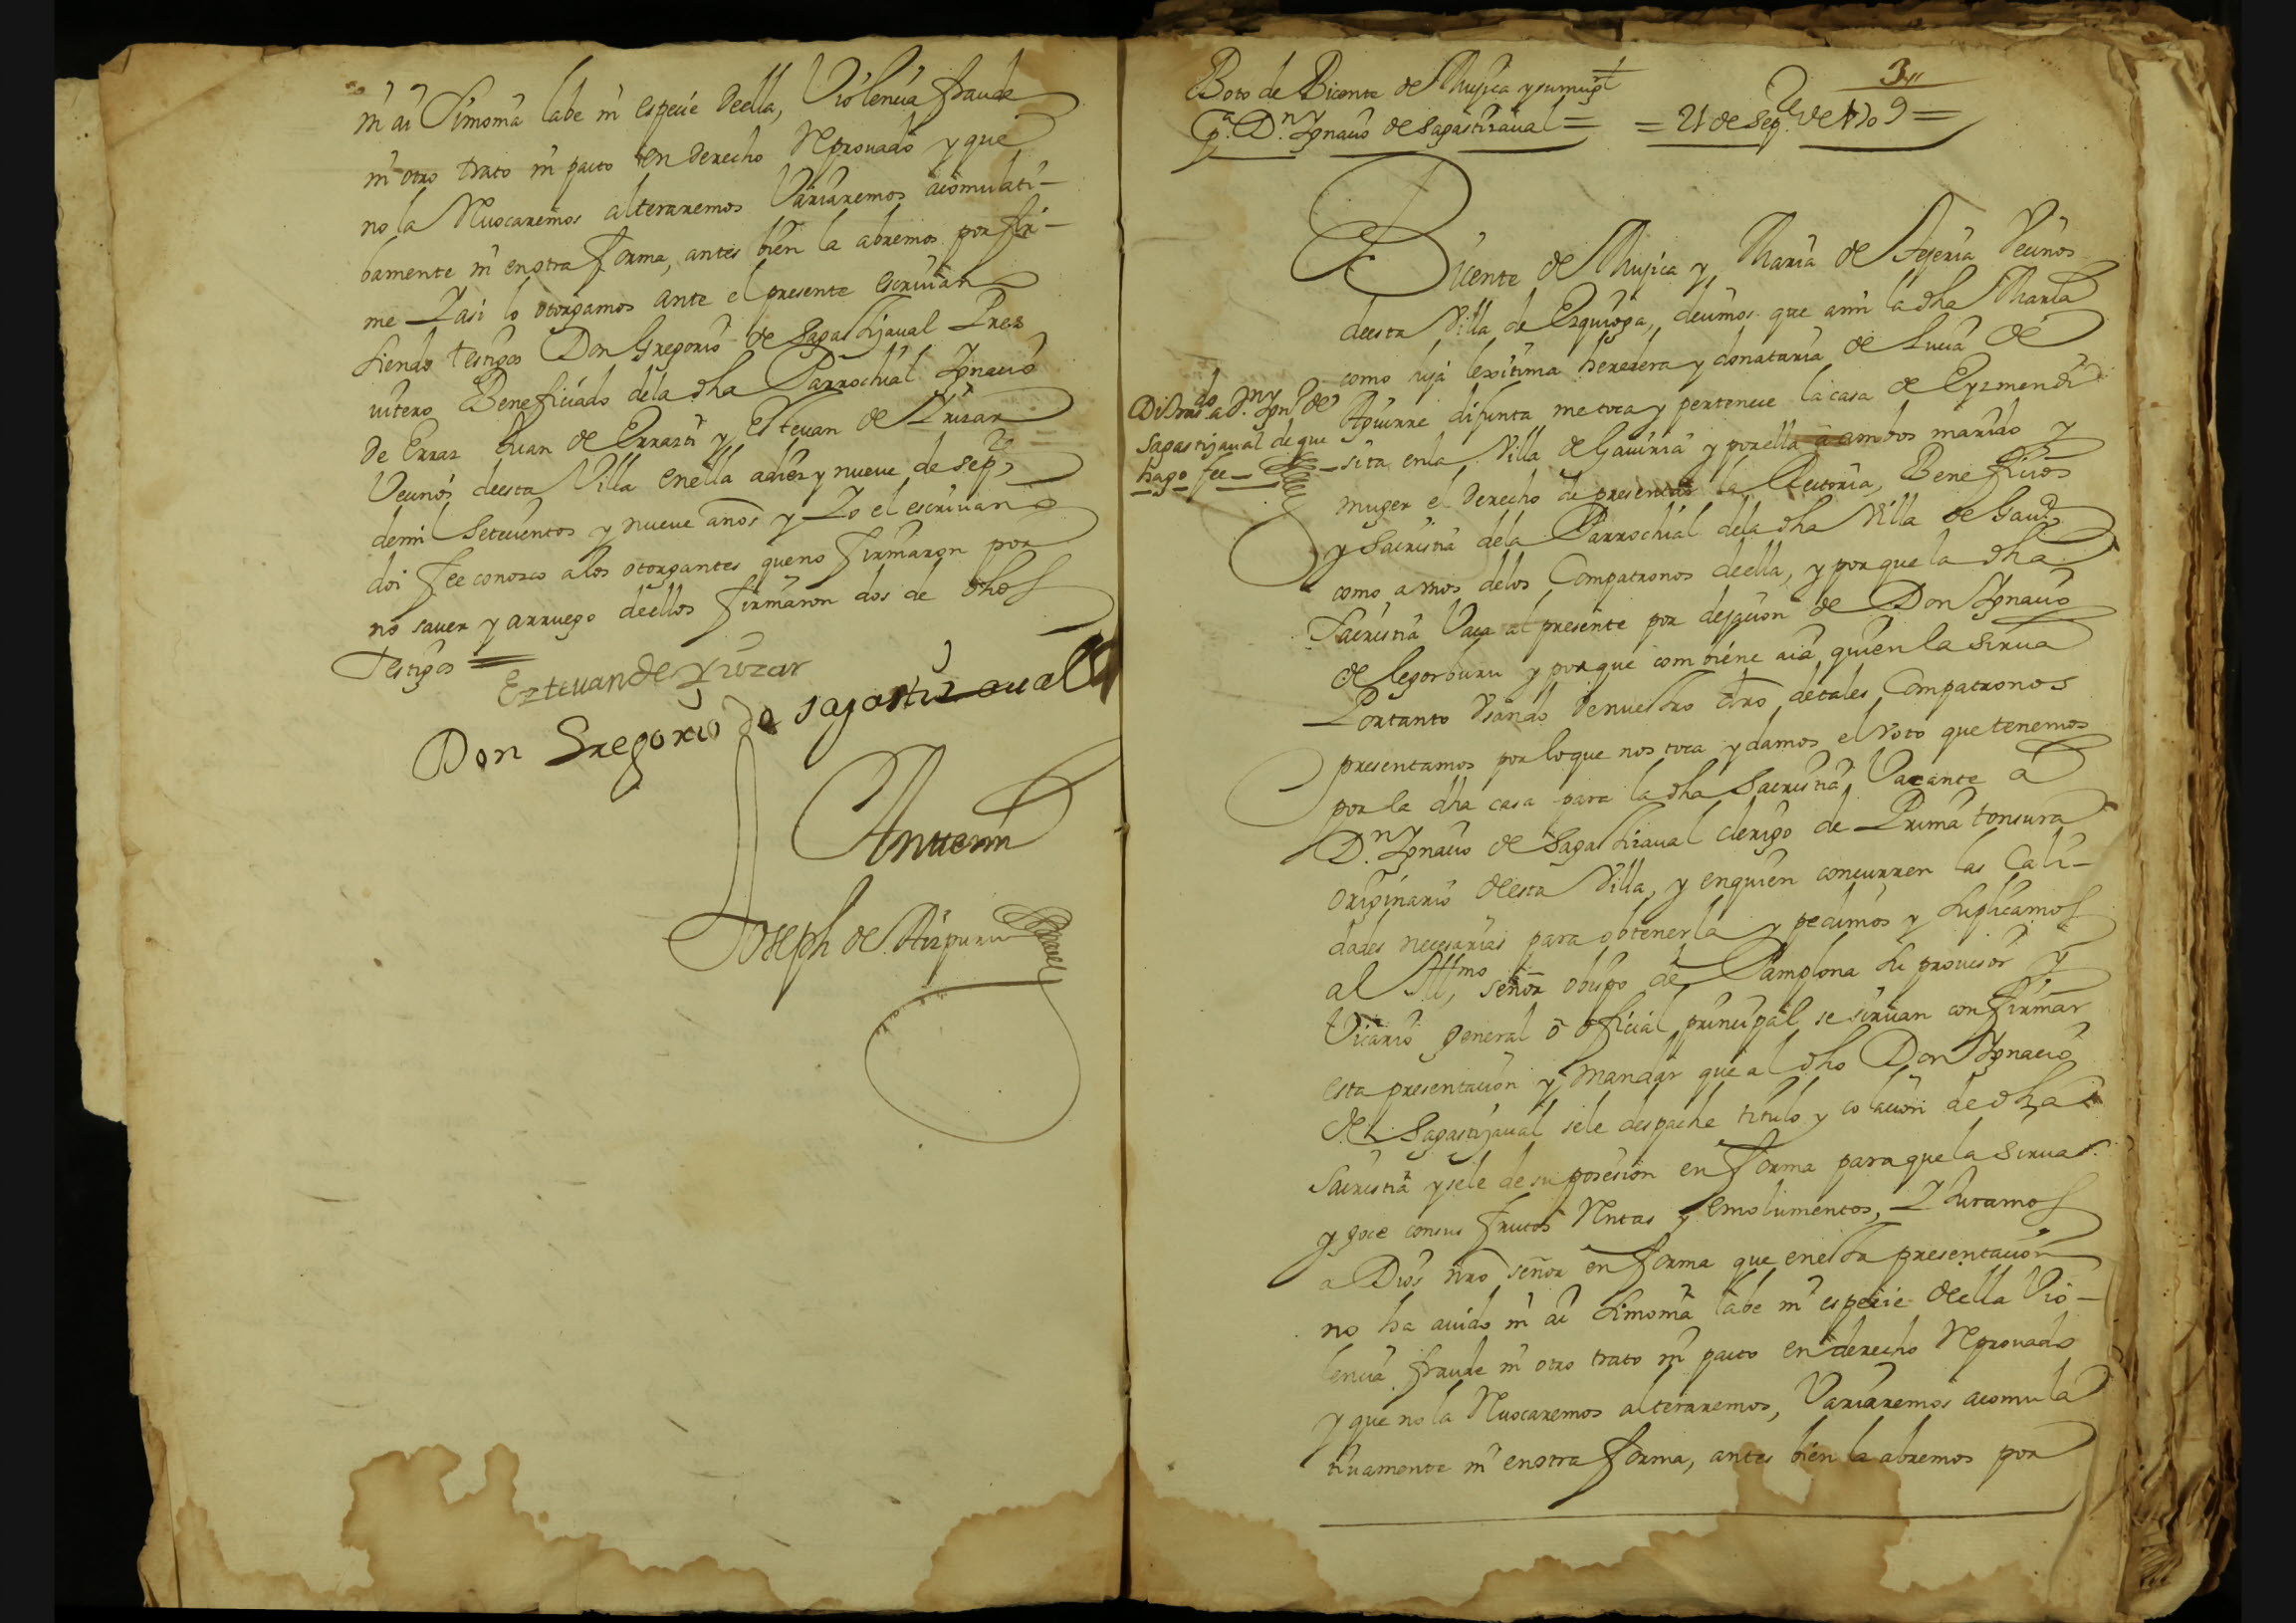 ni ai Simonia labe ni especie deella, Violencia fraude
ni otro trato ni pacto en derecho Reprouado y que
no la Reuocaremos alteraremos Variaremos acomulati-
bamente ni enotra forma, antes bien la abremos por fir-
me Y asi lo otorgamos ante el presente escriuano
siendo testigos Don Gregorio de Sagastijaual Pres
uitero Beneficiado dela dha Parrochial Ygnacio
de Erraz Juan de Errazti y Esteuan de Yrizar
Vecinos deesta Villa enella adiez y nueue de sepre
demil Setecientos y nueue años y Yo el escriuano
doi fee conozco alos otorgantes queno firmaron por
no sauer y arruego deellos firmaron dos de dhos
Testigos =
Ezteuan de Yrizar
Don Gregorio de sagastizaual
Antemi
Joseph de Aizpuru
3
Boto de Bicente de Mujica y sumugr
Pa. Dn Ygnacio de Sagastizaual = = 21 de Sepre de 1709 =
Bicente de Mujica y Maria de Vecinos
deesta Villa de Ezquioga, decimos que ami la dha Maria
como hija lexitima heredera y donataria de Lucia de
Aguirre difunta metoca y pertenece la casa de Eyzmendi
sita enla Villa de Gauiria y porella a ambos marido y
muger el derecho de presentar la Rectoria, Beneficios
y Sacristia dela Parrochial dela dha Villa de Gaura
como a vnos delos Compatronos deella, y porque la dha
Sacristia Vaca al presente por dejacion de Don Ygnacio
de Legorburu y porque combiene aia quien la sirua
Portanto Vsando denuestro dro detales Compatronos
presentamos porloque nos toca y damos el voto que tenemos
por la dha casa para la dha Sacristia Vacante a
Dn Ygnacio de Sagastizaual clerigo de Prima tonsura
originario deesta Villa, y enquien concurren las Cali-
dades necesarias para obtenerla y pedimos y Suplicamos
al Illmo, señor obispo de Pamplona Su prouisor y
Vicario general o oficial principal se siruan confirmar
esta presentacion y mandar que al dho Don Ygnacio
de Sagastijaual sele despache titulo y colacion de dha
Sacristia y sele de su posesion enforma paraque la sirua
y goce consus frutos Rentas y emolumentos, Y Juramos
a Dios nro señor en forma que enesta presentacion
no ha auido ni ai Simonia labe ni especie deella Vio-
lencia fraude ni otro trato ni pacto en derecho Reprouado
y que no la Reuocaremos alteraremos, Variaremos acomula
tiuamente ni enotra forma, antes bien la abremos por
Dise trasdo a Dn Ygno de
Sagastijaual de que
hago fee -